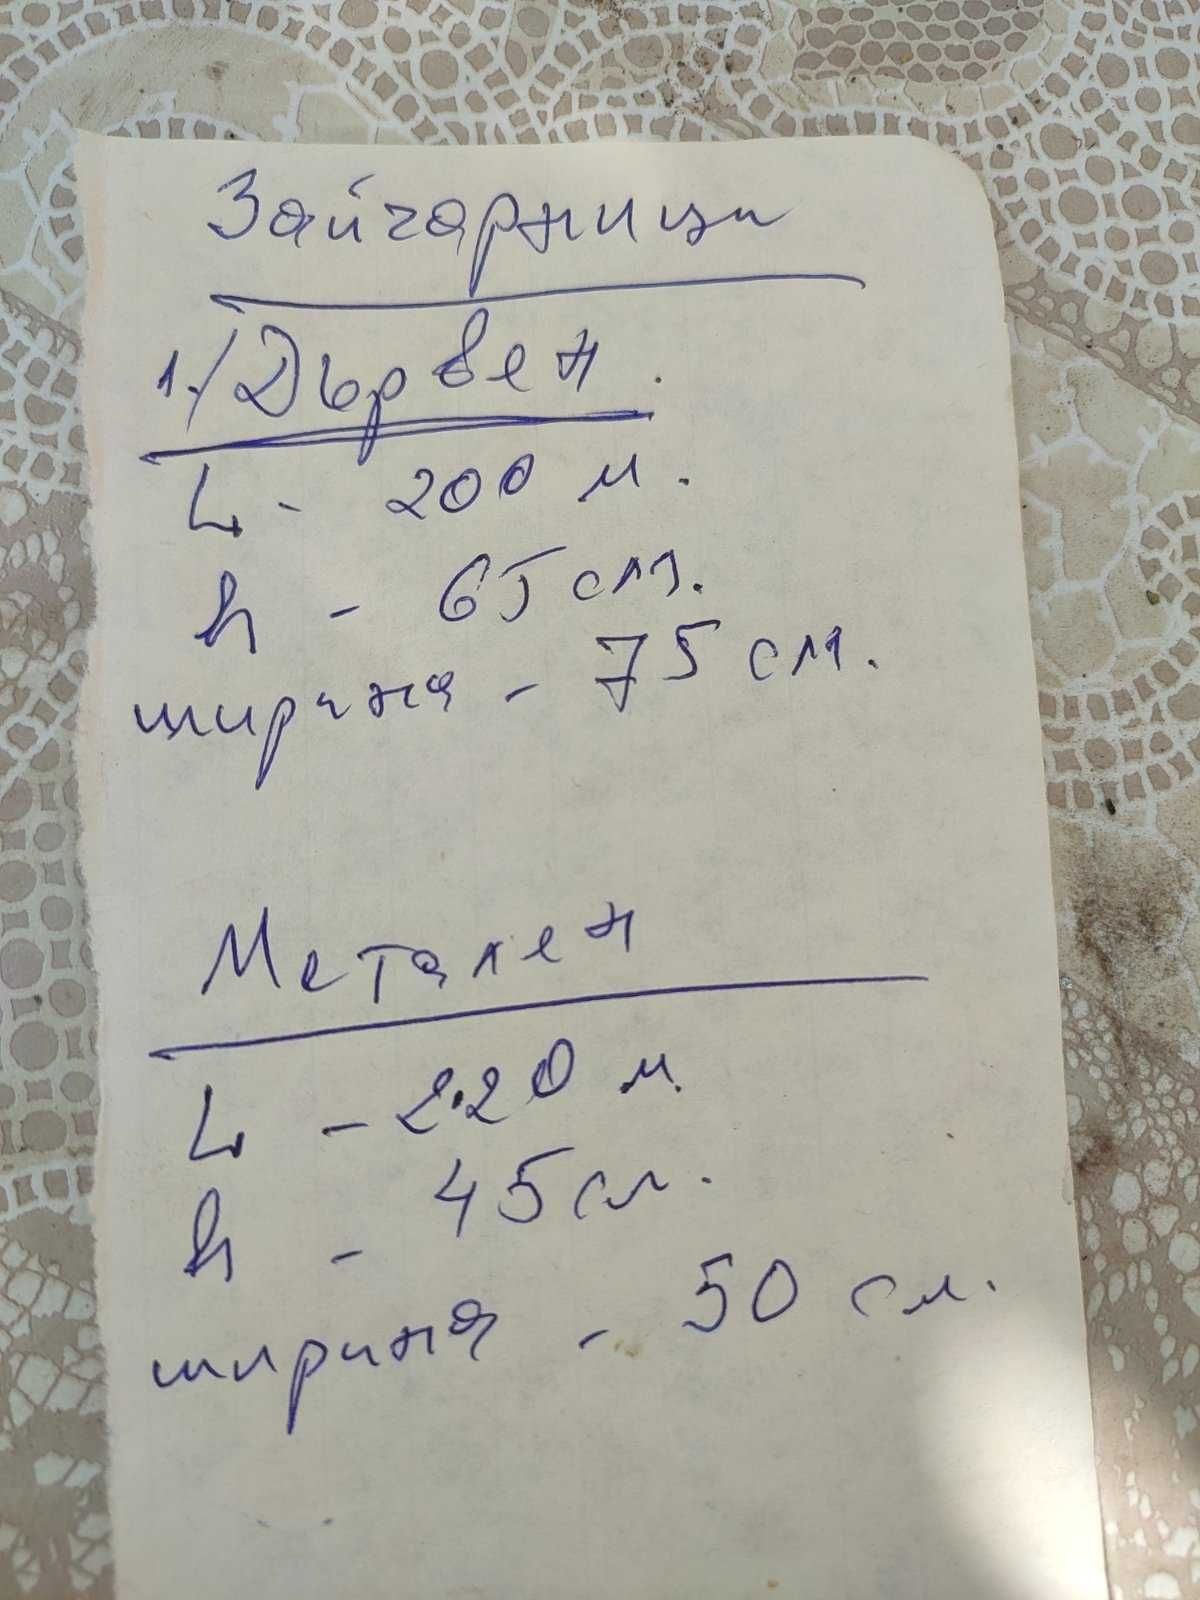 Зайчарници
1./Дървен.
L - 200 м.
h - 65 см.
ширина - 75 см.
Метален
L - 2.20 м.
h - 45 см.
ширина - 50 см.